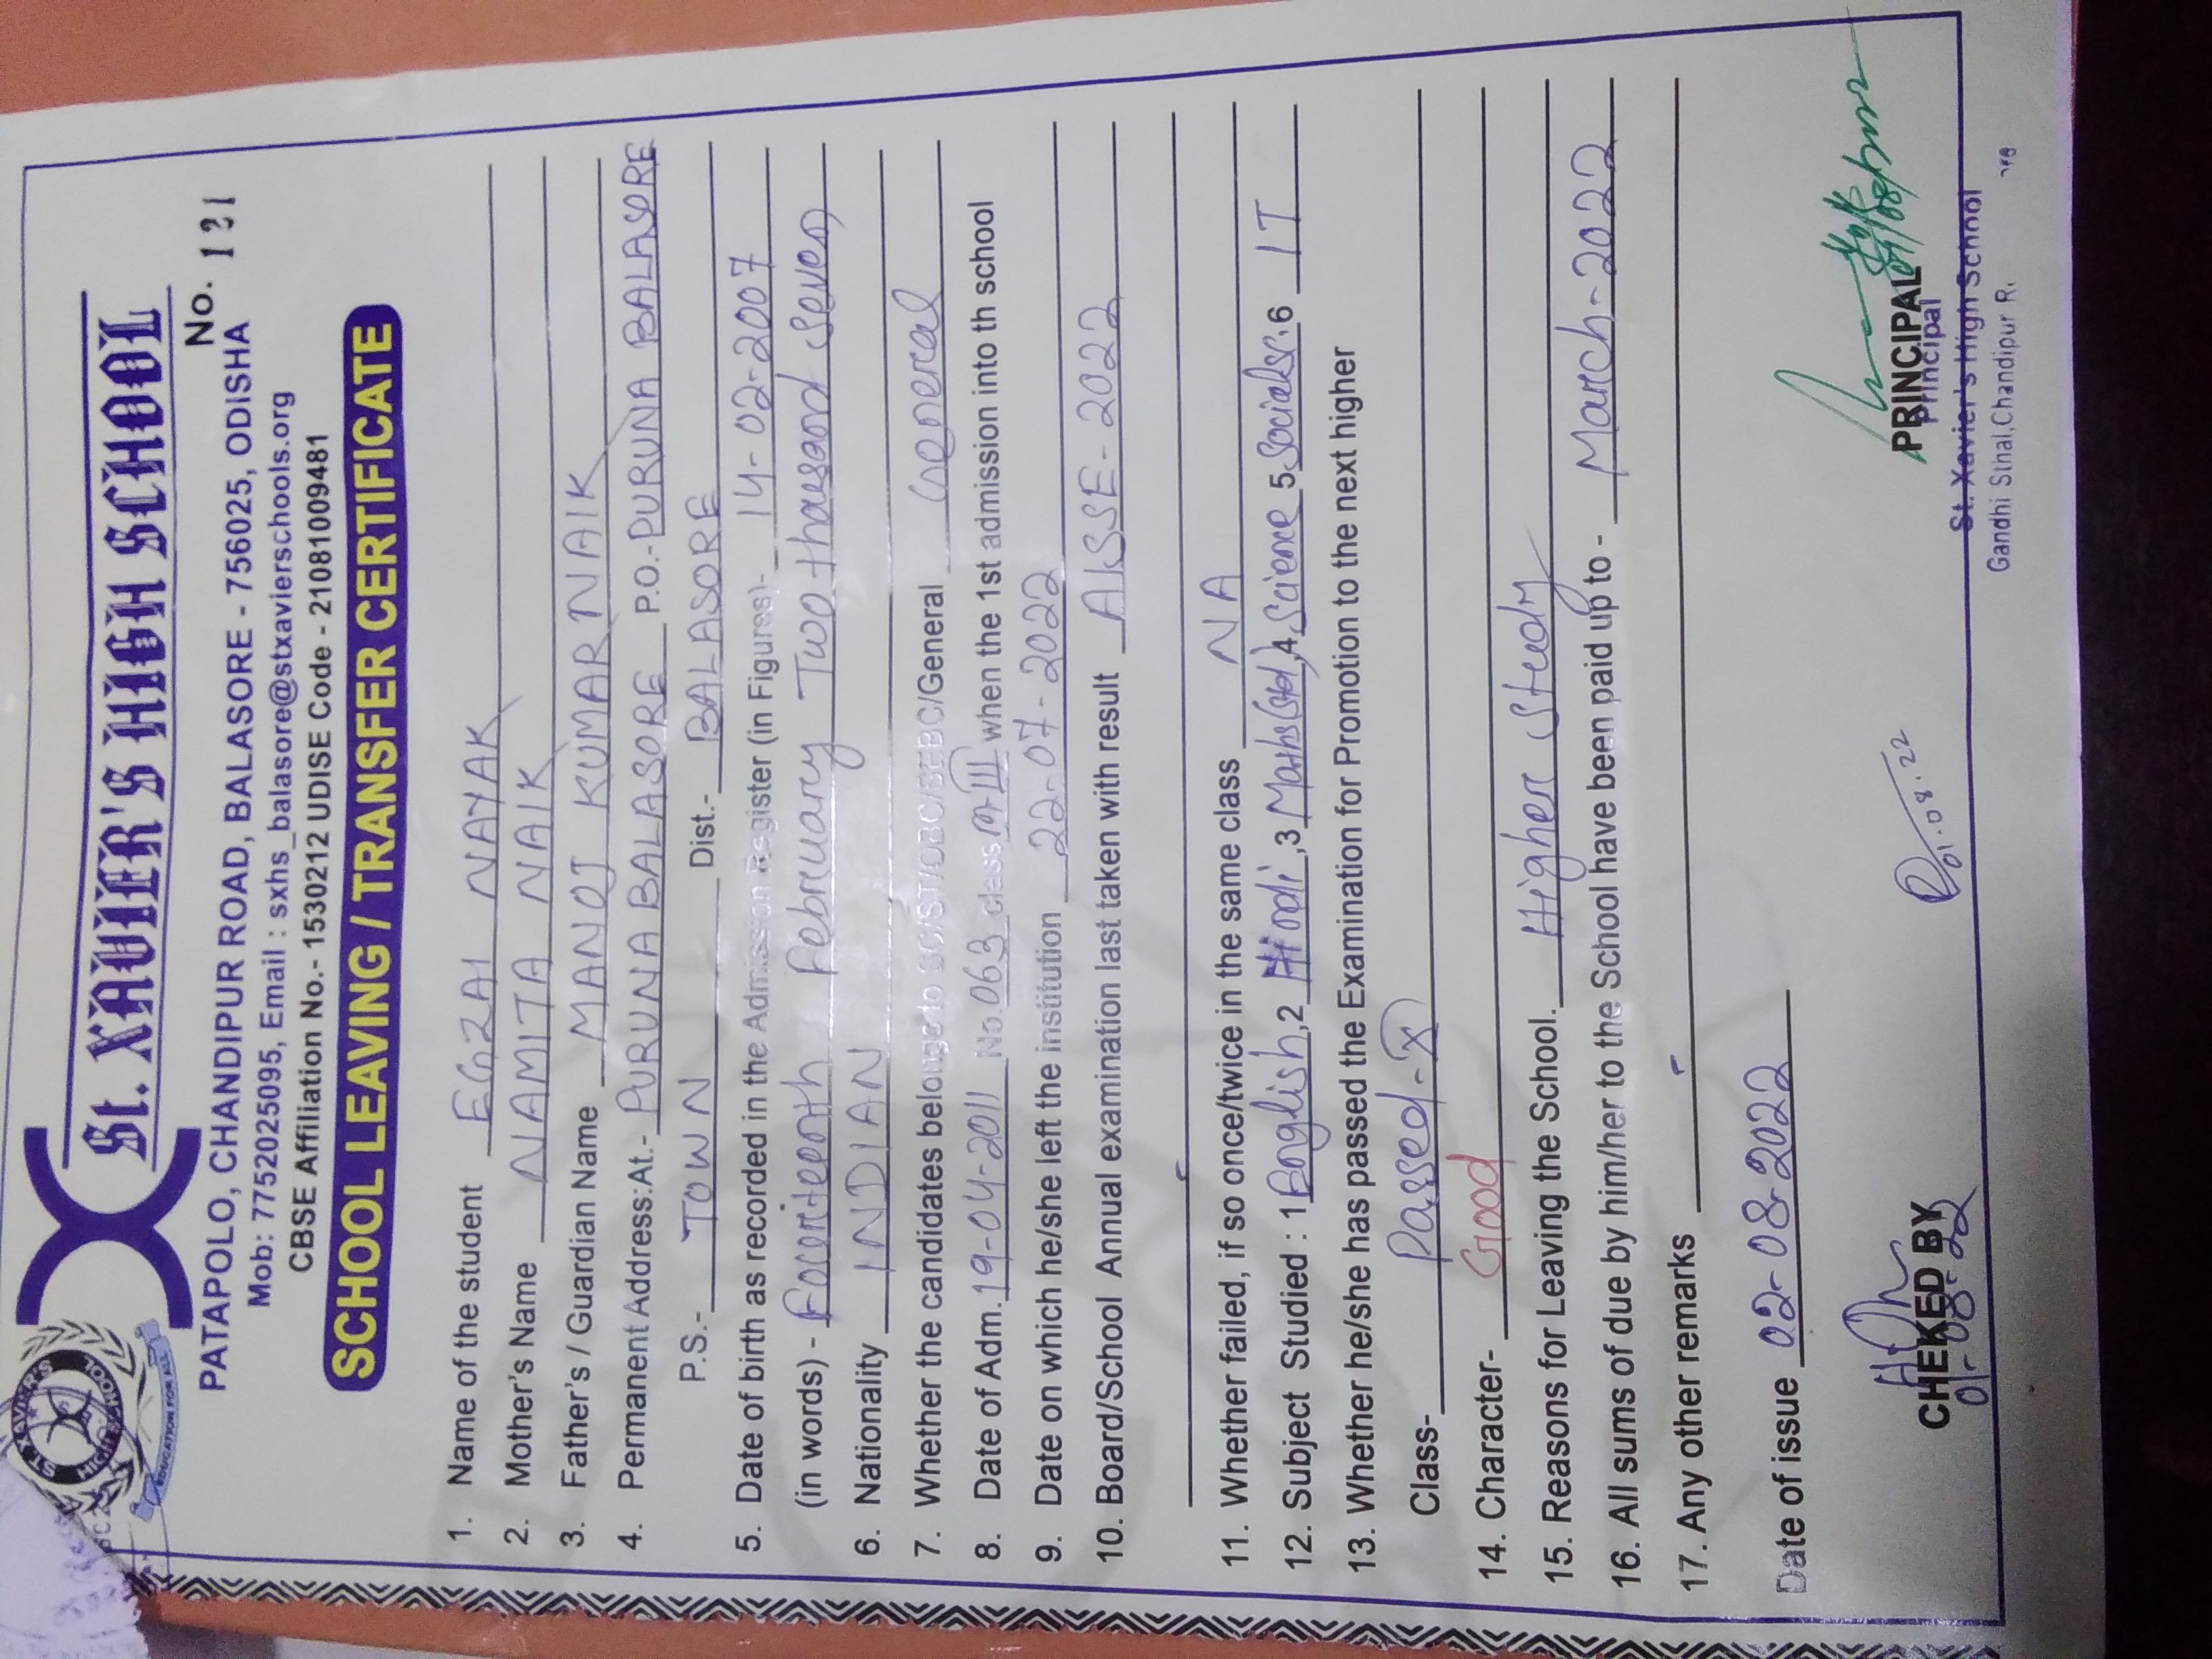 ST. XAVIER'S
HIGH SCHOOL
EDUCATION FOR ALL
St. XAVIER'S HIGH SCHOOL
No. 131
PATAPOLO, CHANDIPUR ROAD, BALASORE - 756025, ODISHA
Mob: 7752025095, Email : sxhs_balasore@stxavierschools.org
CBSE Affiliation No.- 1530212 UDISE Code - 21081009481
SCHOOL LEAVING / TRANSFER CERTIFICATE
1. Name of the student EGZAI NAYAK
2. Mother's Name NAMITA NAIK
3. Father's / Guardian Name MANOJ KUMAR NAIK
4. Permanent Address:At.- PURUNA BALASORE P.O.- PURUNA BALASORE
P.S.- TOWN Dist.- BALASORE
5. Date of birth as recorded in the Admission Register (in Figures)- 14-02-2007
(in words) - Fourteenth February Two thousand seven
6. Nationality INDIAN
7. Whether the candidates belongs to SC/ST/OBC/SEBC/General General
8. Date of Adm. 19-04-2011 No. 063 class III when the 1st admission into th school
9. Date on which he/she left the institution 22-07-2022
10. Board/School Annual examination last taken with result AISSE-2022
11. Whether failed, if so once/twice in the same class NA
12. Subject Studied : 1 English,2 Hindi,3 Maths(Std),4 Science 5 Social Sc.6 IT
13. Whether he/she has passed the Examination for Promotion to the next higher
Class- Passed-X
14. Character- Good
15. Reasons for Leaving the School. Higher study
16. All sums of due by him/her to the School have been paid up to - March-2022
17. Any other remarks -
Date of issue 02-08-2022
CHEKED BY
01-08-22
01.08.22
PRINCIPAL
Principal
St. Xavier's High School
Gandhi Sthal, Chandipur R.